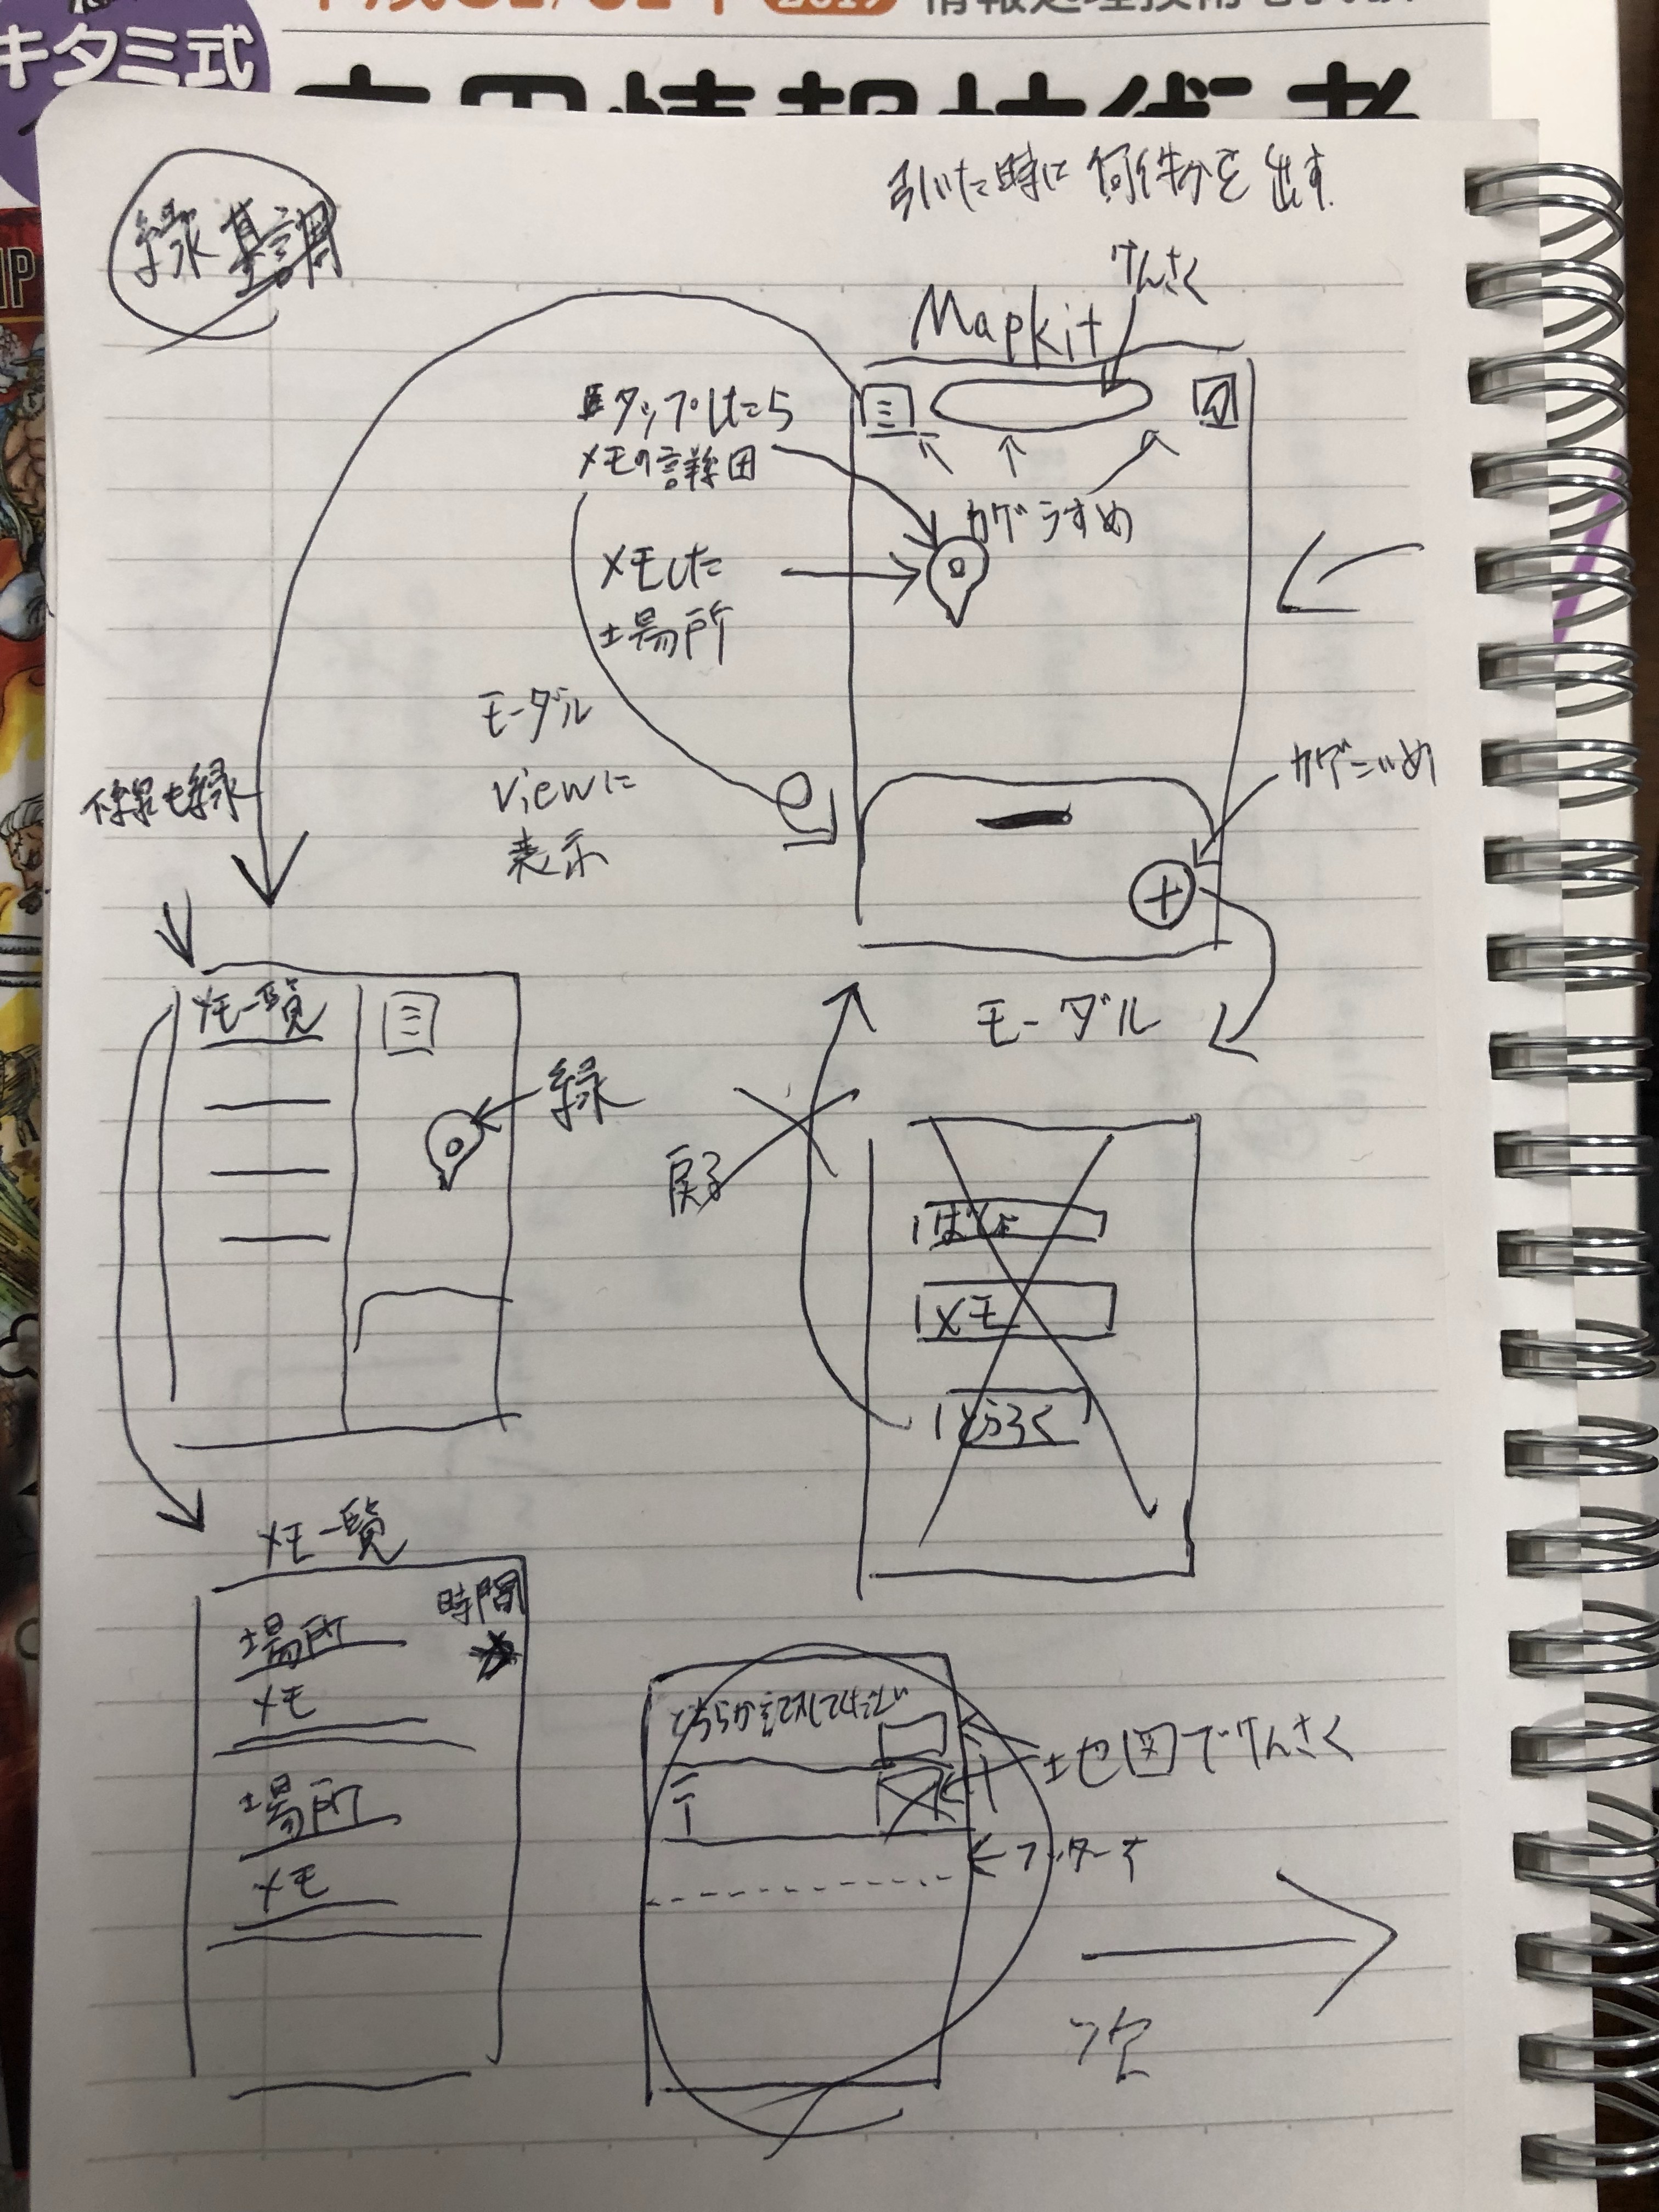 キタミ式
緑基調
引いた時に何件分を出す
けんさく
Mapkit
タップしたら
メモの詳細
カゲうすめ
メモした
場所
モーダル
viewに
表示
カゲこいめ
線も緑
モーダル
メモ一覧
緑
戻る
ばしょ
メモ
とうろく
メモ一覧
時間
場所
メモ
場所
メモ
どちらか記入して下さい
地図でけんさく
〒
フッター
次